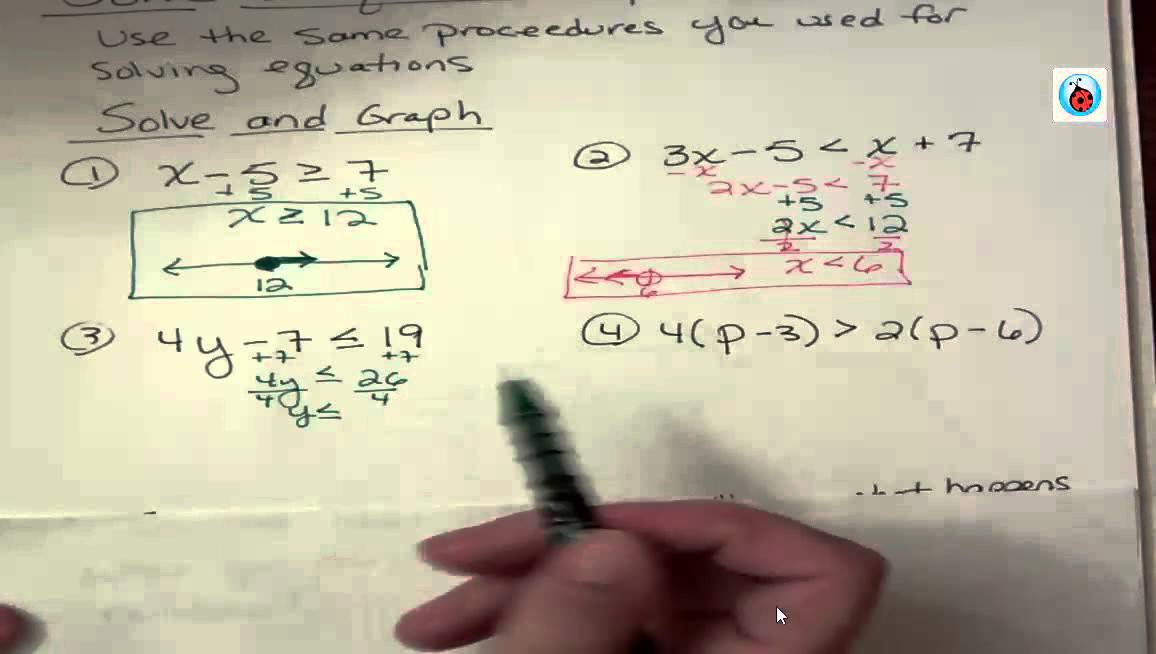 use the same proceedures you used for
solving equations
Solve and Graph
① x - 5 ≥ 7
+5 +5
x ≥ 12
12
② 3x - 5 < x + 7
-x -x
2x - 5 < 7
+5 +5
2x < 12
2 2
x < 6
6
③ 4y - 7 ≤ 19
+7 +7
4y ≤ 26
4 4
y ≤
④ 4(p - 3) > 2(p - 6)
happens